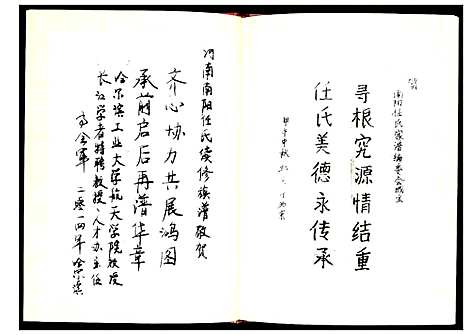 贺
南阳任氏家谱编委会成立
寻根究源情结重
任氏美德永传承
甲午中秋
河南南阳任氏续修族谱敬贺
齐心协力共展鸿图
承前启后再谱华章
哈尔滨工业大学航天学院教授
长江学者特聘教授、人才办主任
二零一四年哈尔滨